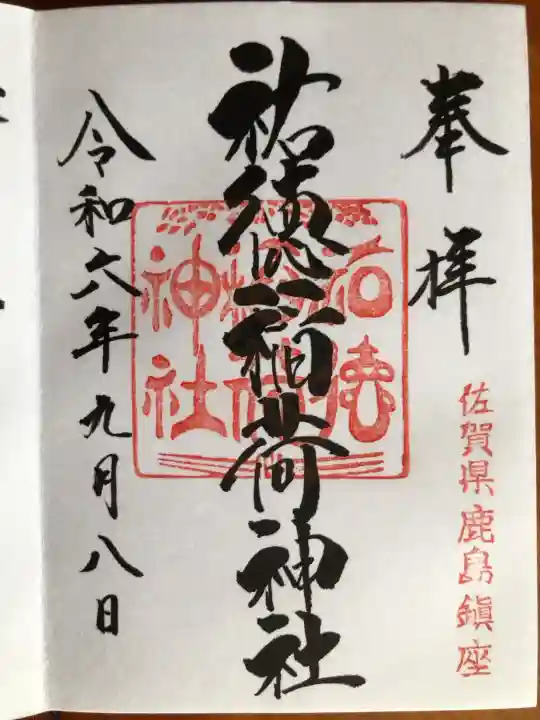 奉拝
佐賀県鹿島鎮座
祐徳稲荷神社
祐徳
稲荷
神社
令和六年九月八日